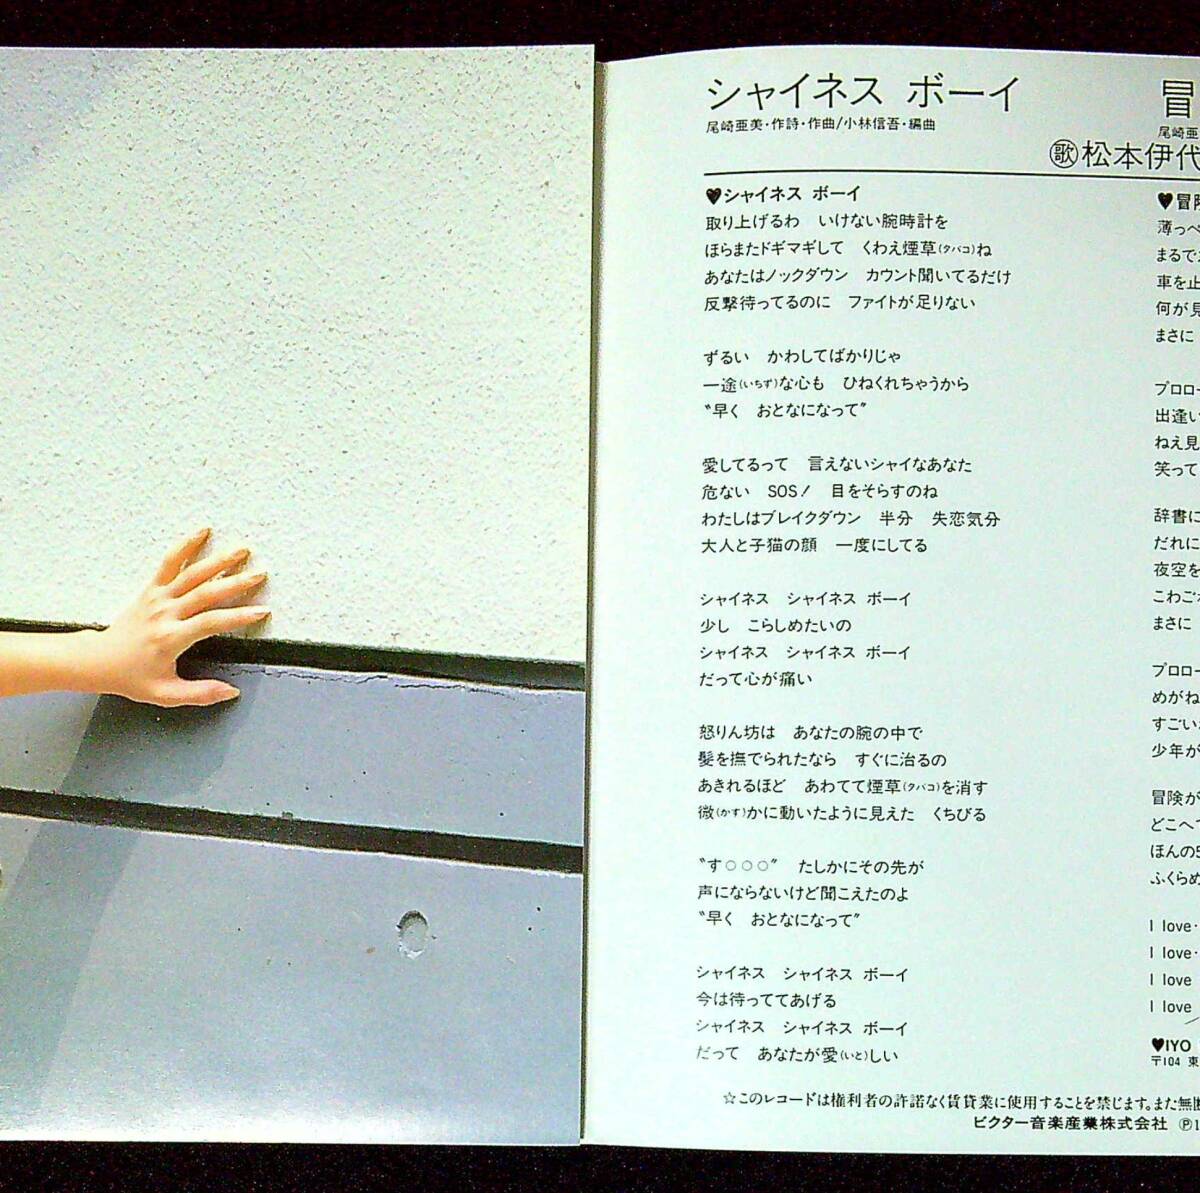 シャイネス ボーイ
尾崎亜美・作詩・作曲/小林信吾・編曲
冒
尾崎亜
歌 松本伊代
♥シャイネス ボーイ
取り上げるわ　いけない腕時計を
ほらまたドギマギして　くわえ煙草(タバコ)ね
あなたはノックダウン　カウント聞いてるだけ
反撃待ってるのに　ファイトが足りない
ずるい　かわしてばかりじゃ
一途(いちず)な心も　ひねくれちゃうから
〝早く　おとなになって〟
愛してるって　言えないシャイなあなた
危ない　SOS！　目をそらすのね
わたしはブレイクダウン　半分　失恋気分
大人と子猫の顔　一度にしてる
シャイネス　シャイネス ボーイ
少し　こらしめたいの
シャイネス　シャイネス ボーイ
だって心が痛い
怒りん坊は　あなたの腕の中で
髪を撫でられたなら　すぐに治るの
あきれるほど　あわてて煙草(タバコ)を消す
微(かす)かに動いたように見えた　くちびる
〝す○○○〟　たしかにその先が
声にならないけど聞こえたのよ
〝早く　おとなになって〟
シャイネス　シャイネス ボーイ
今は待っててあげる
シャイネス　シャイネス ボーイ
だって　あなたが愛(いと)しい
♥冒険
薄っぺ
まるで
車を止
何が見
まさに
プロロー
出逢い
ねえ見
笑って
辞書に
だれに
夜空を
こわごわ
まさに
プロロー
めがね
すごい
少年が
冒険が
どこへで
ほんの5
ふくらめ
I love・
I love・
I love
I love
♥IYO
〒104 東
☆このレコードは権利者の許諾なく賃貸業に使用することを禁じます。また無断
ビクター音楽産業株式会社 Ⓟ1